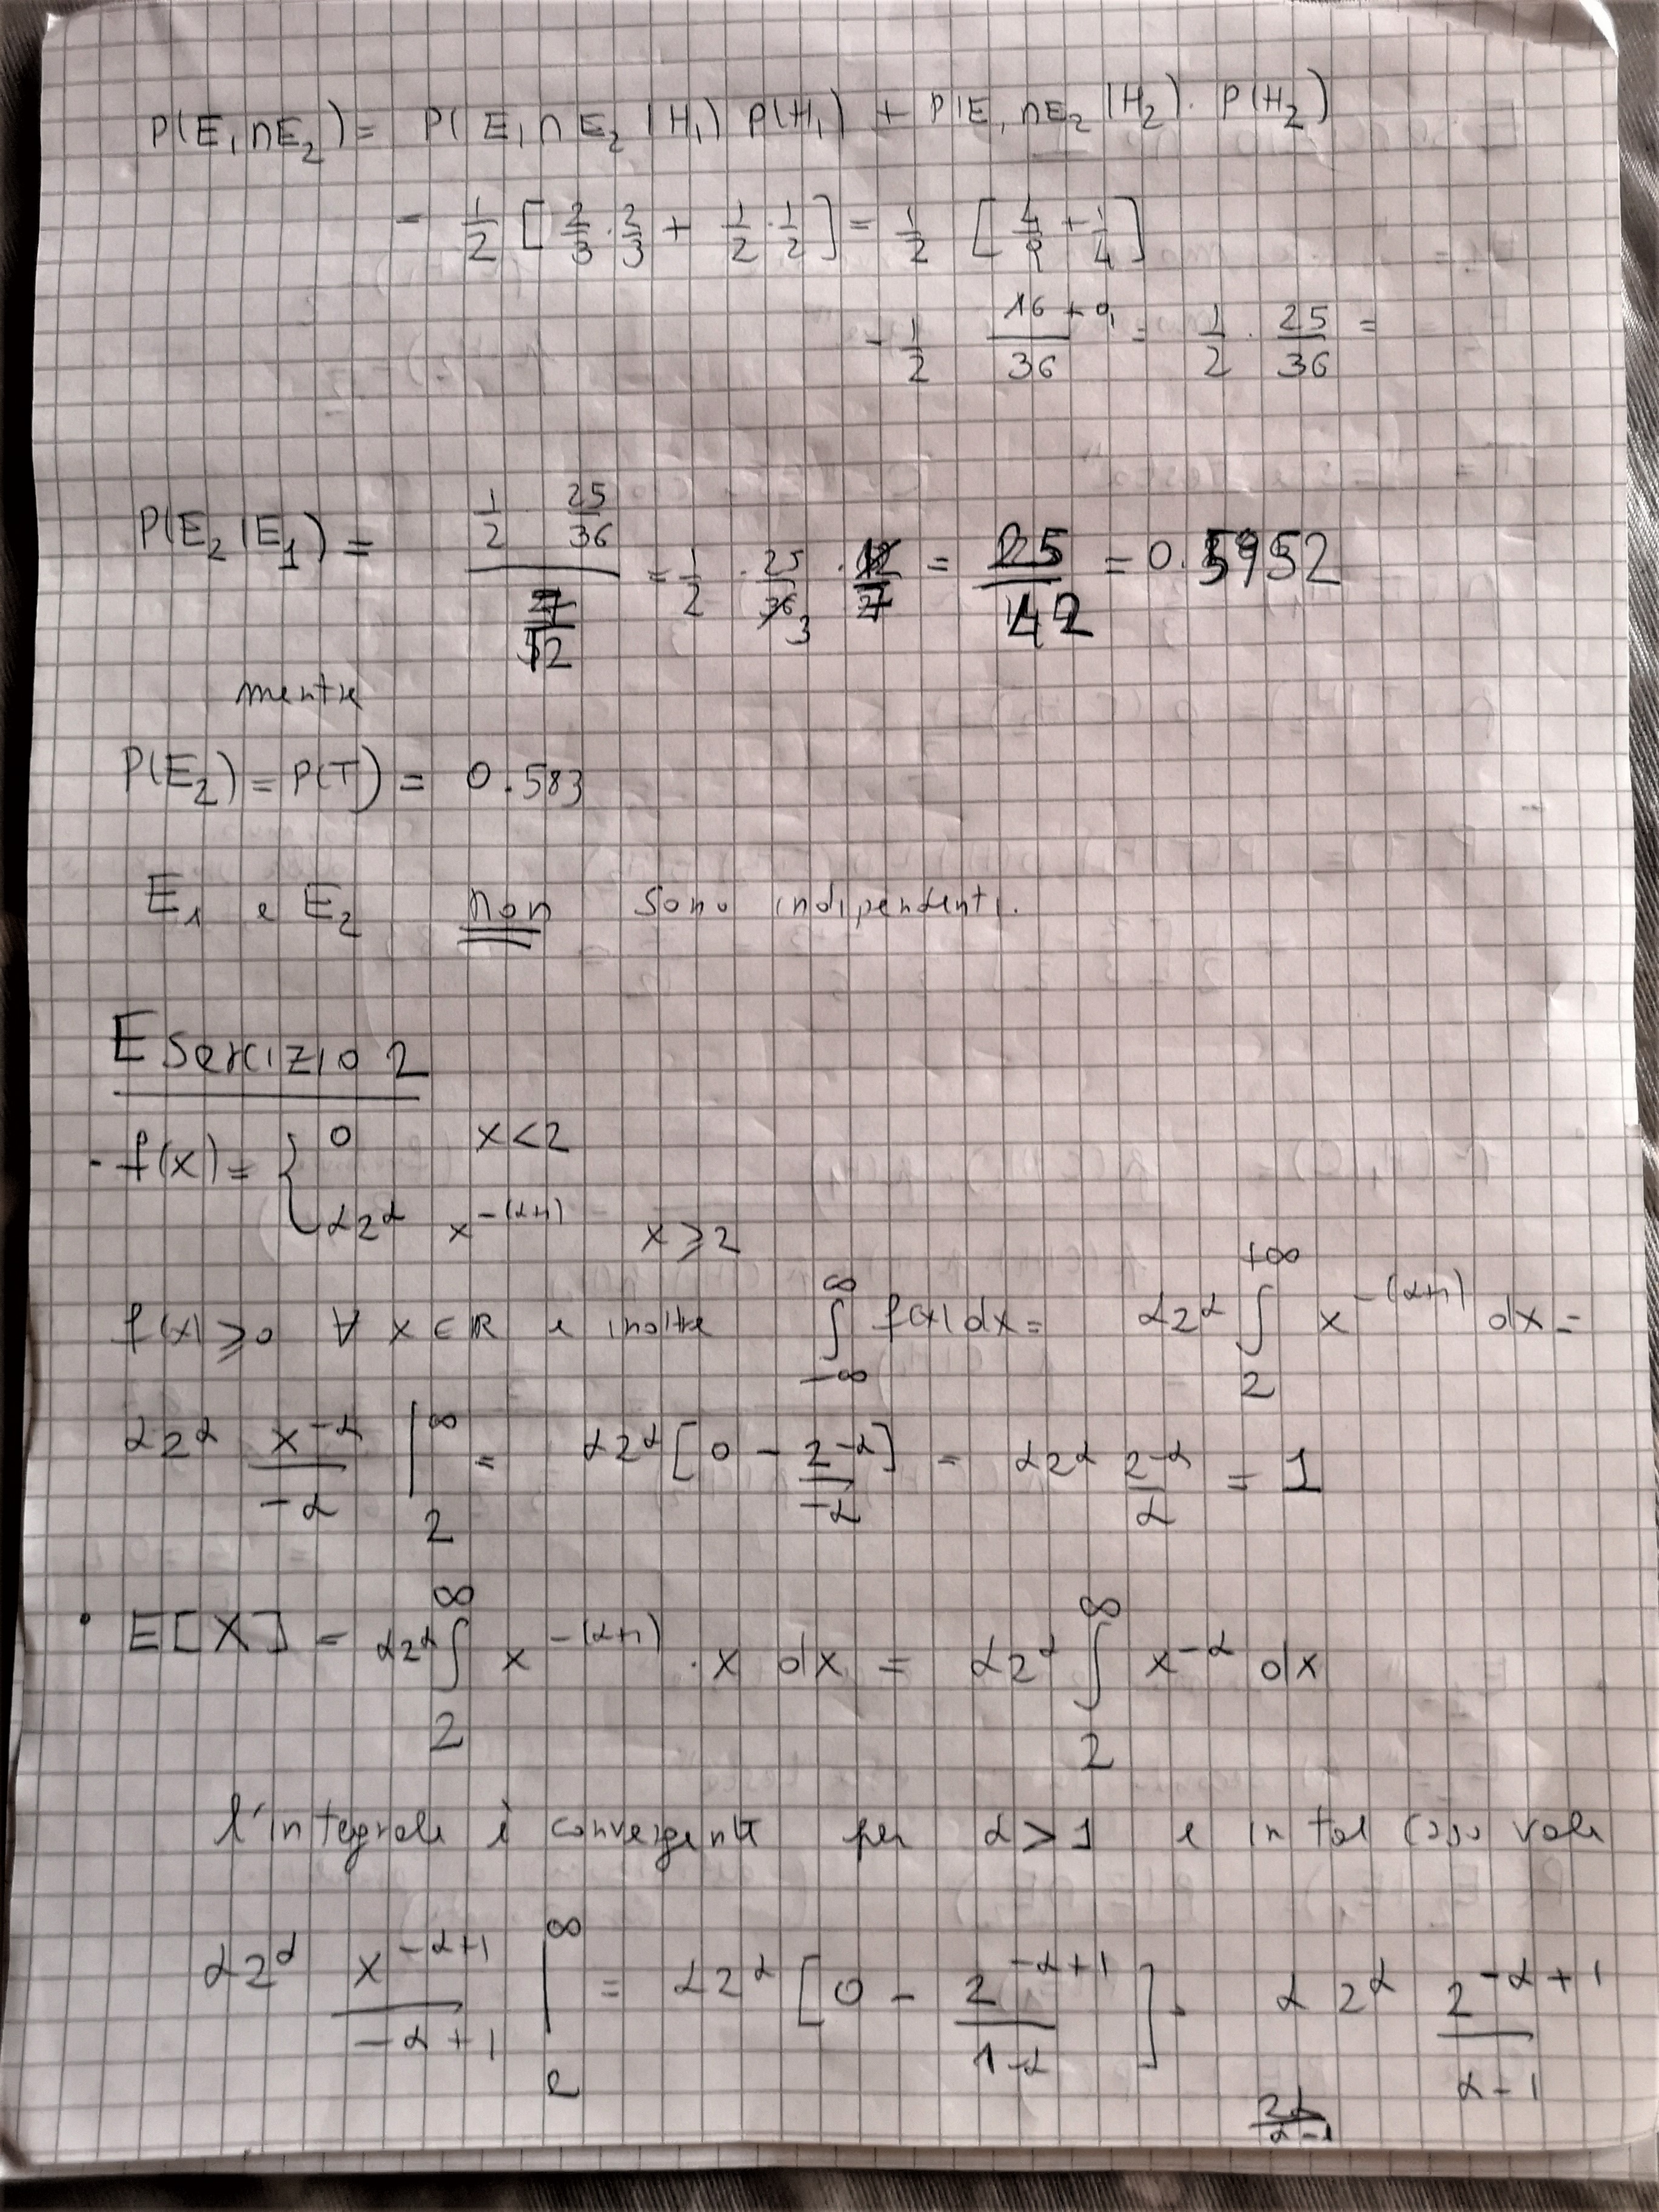 P(E₁∩E₂) = P(E₁∩E₂|H₁) P(H₁) + P(E₁∩E₂|H₂) · P(H₂)
= 1/2 [2/3 · 2/3 + 1/2 · 1/2] = 1/2 [4/9 + 1/4]
= 1/2 (16+9)/36 = 1/2 · 25/36 =
P(E₂|E₁) = (1/2 · 25/36)/(7/12) = 1/2 · 25/36 3 · 12/7 = 25/42 = 0.5952
mentre
P(E₂) = P(T) = 0.583
E₁ e E₂ non sono indipendenti.
Esercizio 2
- f(x) = { 0 x<2
α2^α x^-(α+1) x⩾2
f(x)⩾0 ∀ x∈ℝ e inoltre ∫_{-∞}^{∞} f(x)dx = α2^α ∫_{2}^{+∞} x^-(α+1) dx =
α2^α x^-α/-α |_{2}^{∞} = α2^α [0 - 2^-α/-α] = α2^α 2^-α/α = 1
• E[X] = α2^α ∫_{2}^{∞} x^-(α+1) · x dx = α2^α ∫_{2}^{∞} x^-α dx
l'integrale è convergente per α>1 e in tal caso vale
α2^α x^(-α+1)/(-α+1) |_{2}^{∞} = α2^α [0 - 2^(-α+1)/(1-α)] = α 2^α 2^(-α+1)/(α-1)
2α/(α-1)